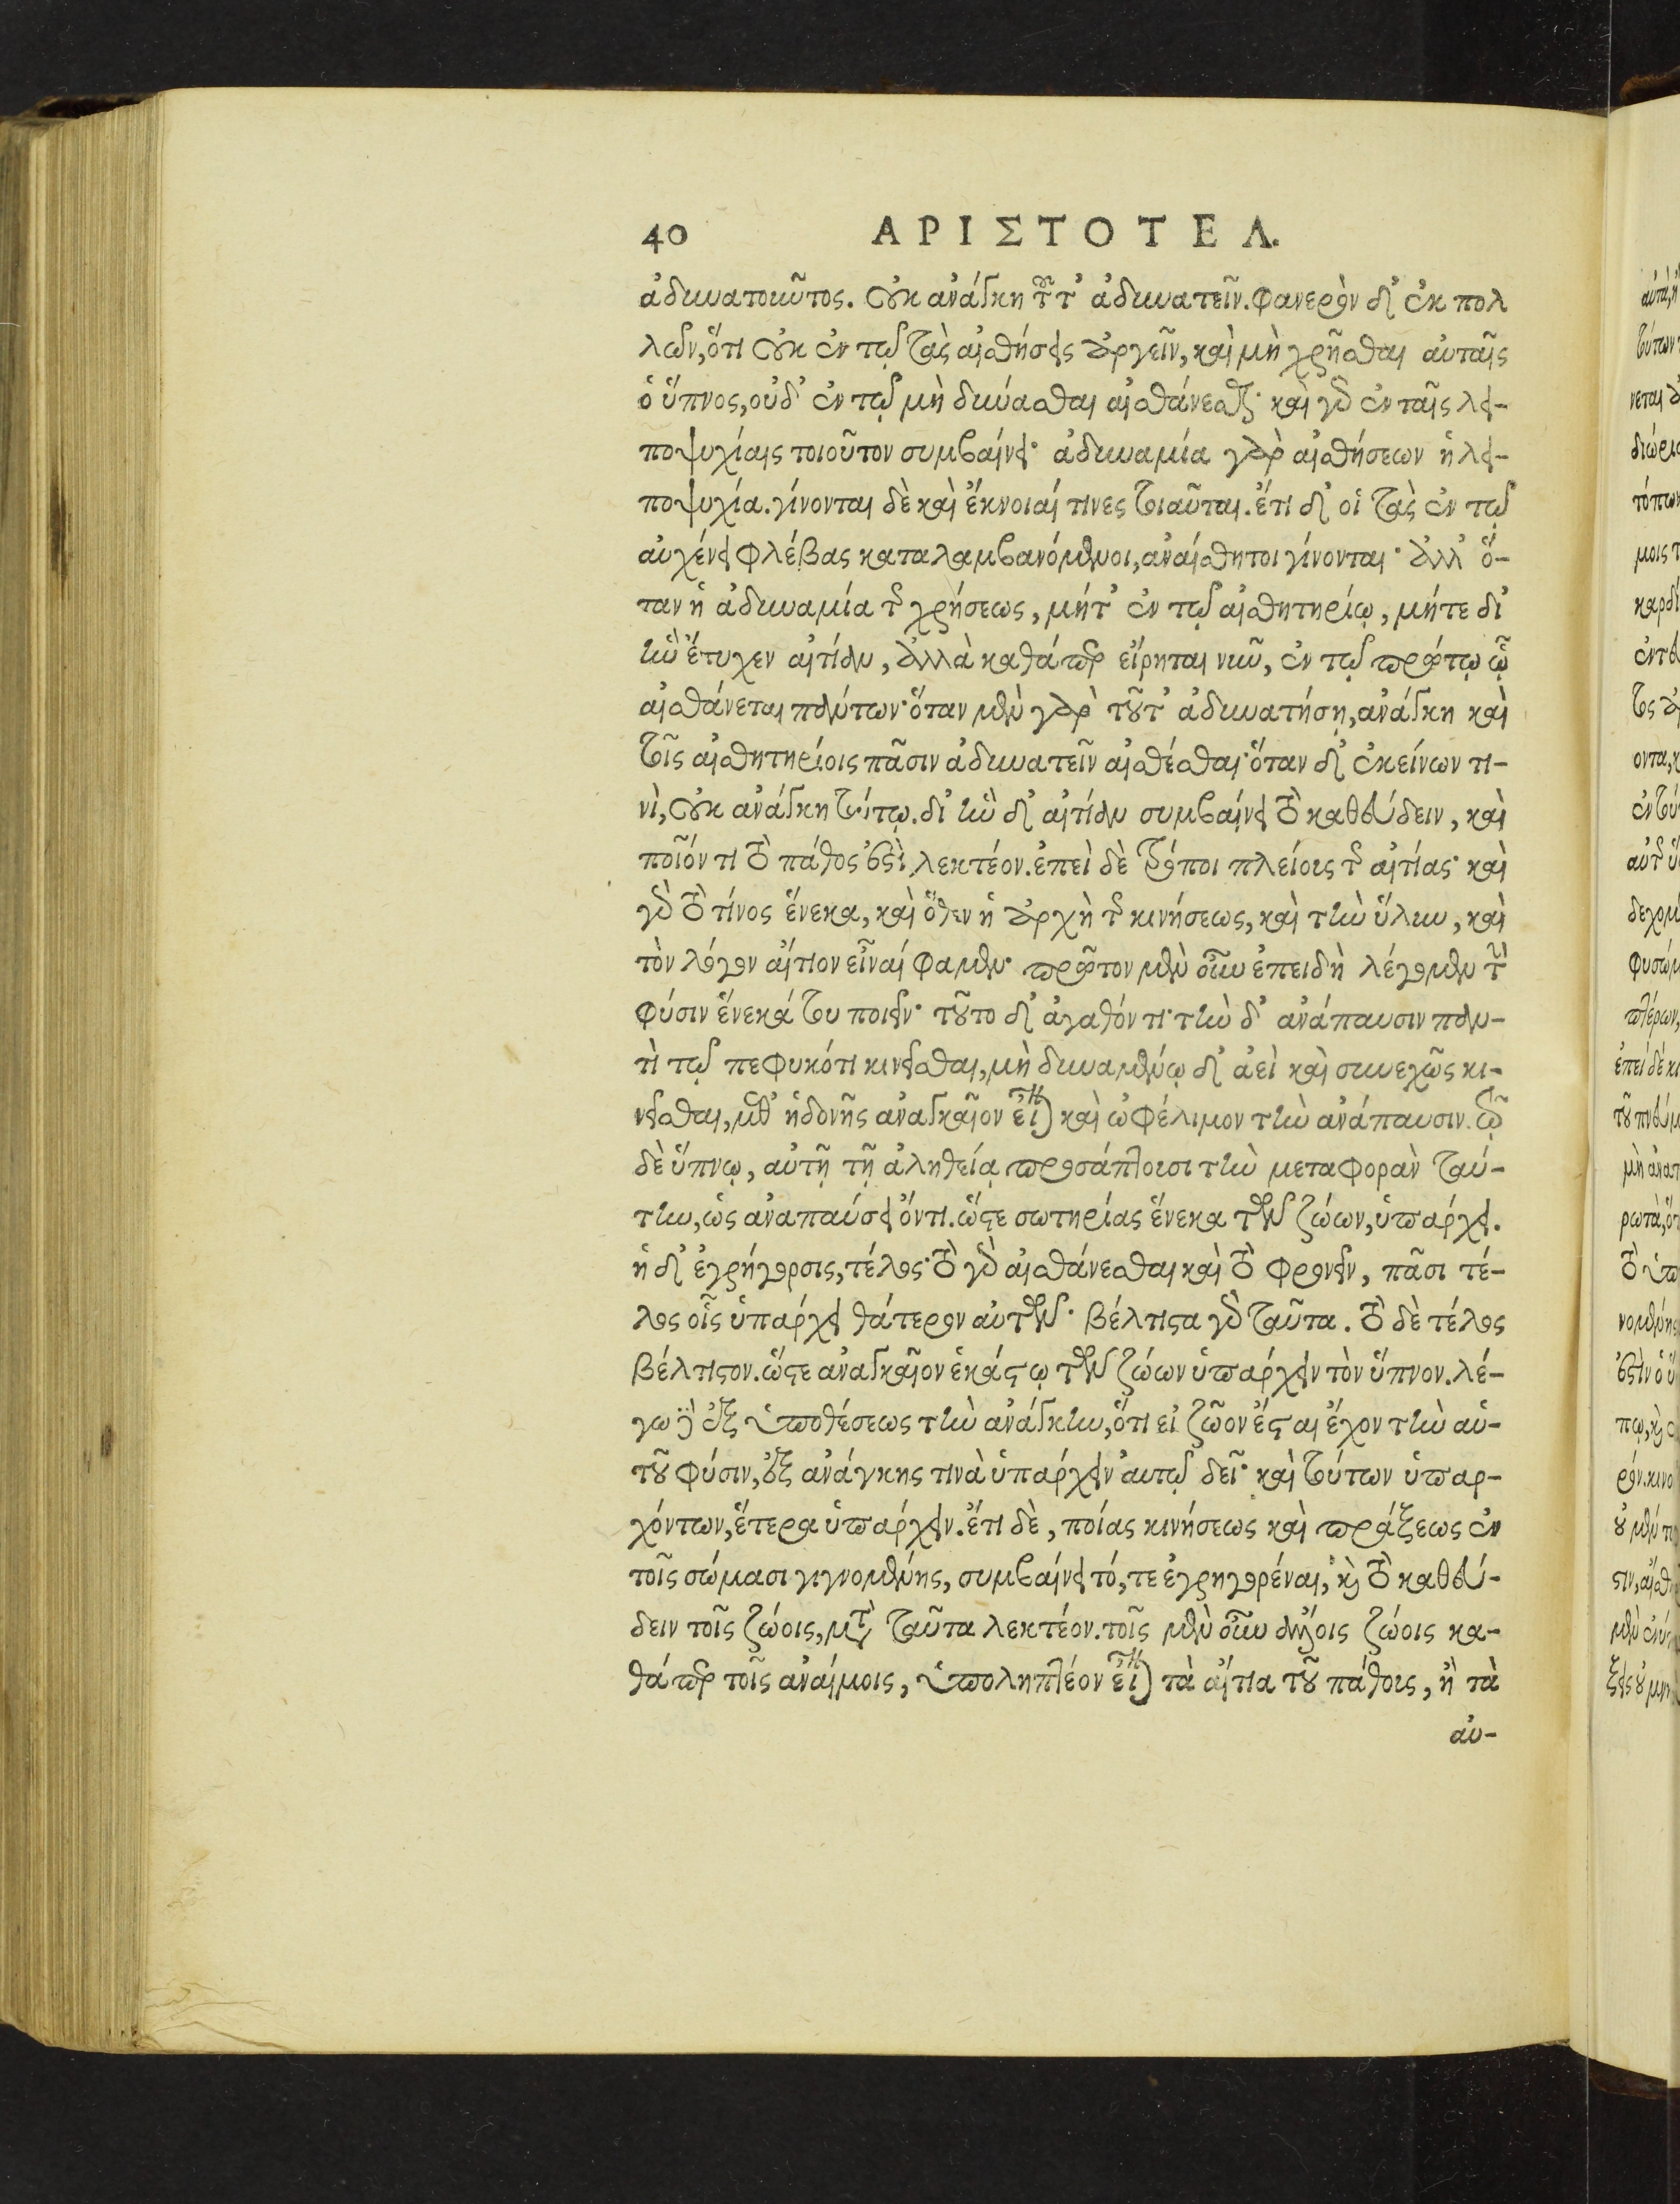 40 ΑΡΙΣΤΟΤΕΛ.
ἀδυνατοῦντος. οὐκ ἀνάγκη τοῦτ' ἀδυνατεῖν. φανερὸν δ' ἐκ πολ
λῶν, ὅτι οὐκ ἐν τῷ τὰς αἰσθήσεις ἀργεῖν, καὶ μὴ χρῆσθαι αὐταῖς
ὁ ὕπνος, οὐδ' ἐν τῷ μὴ δύνασθαι αἰσθάνεσθαι· καὶ γὰρ ἐν ταῖς λει-
ποψυχίαις τοιοῦτον συμβαίνει· ἀδυναμία γὰρ αἰσθήσεων ἡ λει-
ποψυχία. γίνονται δὲ καὶ ἔκνοιαί τινες τοιαῦται. ἔτι δ' οἱ τὰς ἐν τῷ
αὐχένι φλέβας καταλαμβανόμενοι, ἀναίσθητοι γίνονται· ἀλλ' ὅ-
ταν ἡ ἀδυναμία τῆς χρήσεως, μήτ' ἐν τῷ αἰσθητηρίῳ, μήτε δι'
ἣν ἔτυχεν αἰτίαν, ἀλλὰ καθάπερ εἴρηται νῦν, ἐν τῷ πρώτῳ ᾧ
αἰσθάνεται πάντων· ὅταν μὲν γὰρ τοῦτ' ἀδυνατήσῃ, ἀνάγκη καὶ
τοῖς αἰσθητηρίοις πᾶσιν ἀδυνατεῖν αἰσθέσθαι· ὅταν δ' ἐκείνων τι-
νὶ, οὐκ ἀνάγκη τούτῳ. δι' ἣν δ' αἰτίαν συμβαίνει τὸ καθεύδειν, καὶ
ποῖόν τι τὸ πάθος ἐστὶ, λεκτέον. ἐπεὶ δὲ τρόποι πλείους τῆς αἰτίας· καὶ
γὰρ τὸ τίνος ἕνεκα, καὶ ὅθεν ἡ ἀρχὴ τῆς κινήσεως, καὶ τὴν ὕλην, καὶ
τὸν λόγον αἴτιον εἶναί φαμεν· πρῶτον μὲν οὖν ἐπειδὴ λέγομεν τὴν
φύσιν ἕνεκά του ποιεῖν· τοῦτο δ' ἀγαθόν τι· τὴν δ' ἀνάπαυσιν παν-
τὶ τῷ πεφυκότι κινεῖσθαι, μὴ δυναμένῳ δ' ἀεὶ καὶ συνεχῶς κι-
νεῖσθαι, μεθ' ἡδονῆς ἀναγκαῖον εἶναι καὶ ὠφέλιμον τὴν ἀνάπαυσιν. τῷ
δὲ ὕπνῳ, αὐτῇ τῇ ἀληθείᾳ προσάπτουσι τὴν μεταφορὰν ταύ-
την, ὡς ἀναπαύσει ὄντι. ὥστε σωτηρίας ἕνεκα τῶν ζώων, ὑπάρχει.
ἡ δ' ἐγρήγορσις, τέλος· τὸ γὰρ αἰσθάνεσθαι καὶ τὸ φρονεῖν, πᾶσι τέ-
λος οἷς ὑπάρχει θάτερον αὐτῶν· βέλτιστα γὰρ ταῦτα. τὸ δὲ τέλος
βέλτιστον. ὥστε ἀναγκαῖον ἑκάστῳ τῶν ζώων ὑπάρχειν τὸν ὕπνον. λέ-
γω δὲ ἐξ ὑποθέσεως τὴν ἀνάγκην, ὅτι εἰ ζῶον ἔσται ἔχον τὴν αὑ-
τοῦ φύσιν, ἐξ ἀνάγκης τινὰ ὑπάρχειν αὐτῷ δεῖ· καὶ τούτων ὑπαρ-
χόντων, ἕτερα ὑπάρχειν. ἔτι δὲ, ποίας κινήσεως καὶ πράξεως ἐν
τοῖς σώμασι γιγνομένης, συμβαίνει τό, τε ἐγρηγορέναι, καὶ τὸ καθεύ-
δειν τοῖς ζώοις, μετὰ ταῦτα λεκτέον. τοῖς μὲν οὖν ἄλλοις ζώοις κα-
θάπερ τοῖς ἀναίμοις, ὑποληπτέον εἶναι τὰ αἴτια τοῦ πάθους, ἢ τὰ
αὐ-